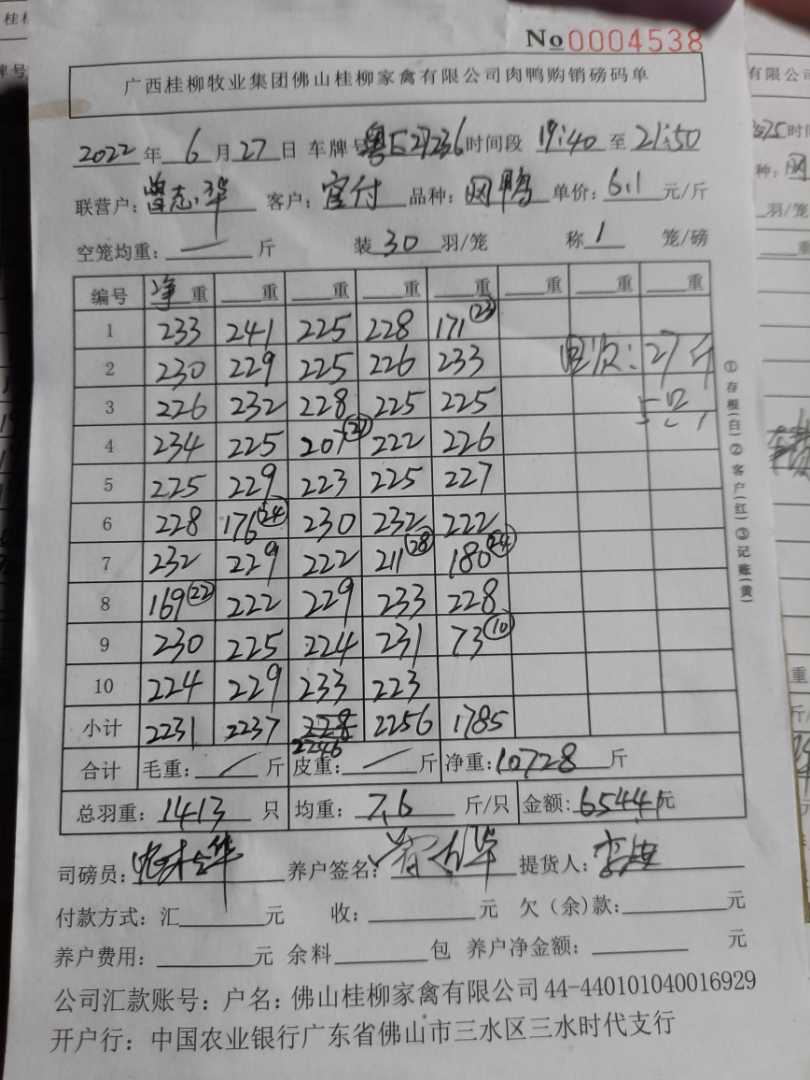 No 0004538
广西桂柳牧业集团佛山桂柳家禽有限公司肉鸭购销磅码单
2022 年 6 月 27 日 车牌号 粤E27236 时间段 19:40 至 21:50
联营户: 曾志华 客户: 官付 品种: 网鸭 单价: 6.1 元/斤
空笼均重: — 斤 装 30 羽/笼 称 1 笼/磅
编号 净重 重 重 重 重 重 重 重
1 233 241 225 228 171 (23)
2 230 229 225 226 233 27斤
3 226 232 228 225 225
4 234 225 207 222 226
5 225 229 223 225 227
6 228 176 (24) 230 232 222
7 232 229 222 211 (28) 180 (24)
8 169 (22) 222 229 233 228
9 230 225 224 231 73 (10)
10 224 229 233 223
小计 2231 2237 228 2256 1785
2246
合计 毛重: 斤 皮重: 斤 净重: 10728 斤
总羽重: 1413 只 均重: 7.6 斤/只 金额: 65441 元
司磅员: 养户签名: 提货人:
付款方式: 汇 元 收: 元 欠(余)款: 元
养户费用: 元 余料 包 养户净金额: 元
公司汇款账号: 户名: 佛山桂柳家禽有限公司 44-440101040016929
开户行: 中国农业银行广东省佛山市三水区三水时代支行
①存根(白)②客户(红)③记账(黄)